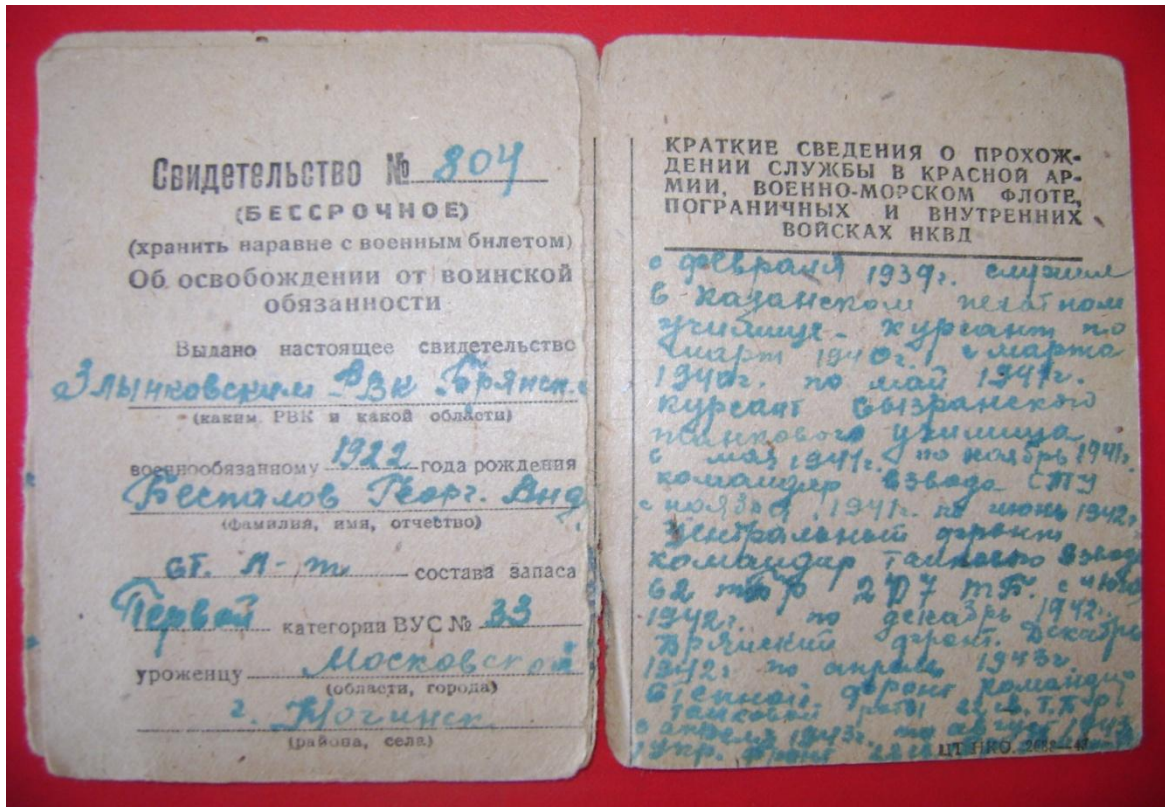 Свидетельство № 804
(БЕССРОЧНОЕ)
(хранить наравне с военным билетом)
Об освобождении от воинской
обязанности
Выдано настоящее свидетельство
Злынковским РВК Брянск.
(каким РВК и какой области)
военнообязанному 1922 года рождения
Беспалов Георг. Анд
(фамилия, имя, отчество)
ст. л-т состава запаса
Первой категории ВУС № 33
уроженцу Московской
(области, города)
г. Ногинск
(района, села)
КРАТКИЕ СВЕДЕНИЯ О ПРОХОЖ-
ДЕНИИ СЛУЖБЫ В КРАСНОЙ АР-
МИИ, ВОЕННО-МОРСКОМ ФЛОТЕ,
ПОГРАНИЧНЫХ И ВНУТРЕННИХ
ВОЙСКАХ НКВД
с февраля 1939г. служил
в Казанском пехотном
училище - курсант по
март 1940г. с марта
1940г. по май 1941г.
курсант Сызранского
танкового училища
с мая 1941г. по ноябрь 1941г.
командир взвода СТУ
с ноября 1941г. по июнь 1942г.
Центральный фронт
командир танкового взвода
62 207 ТБ. с июня
1942г. по декабрь 1942г.
Брянский фронт. Декабрь
1942г. по апрель 1943г.
Степной фронт командир
танковой роты
с апреля 1943г. по август 1943
фронт
ЦТ НКО.